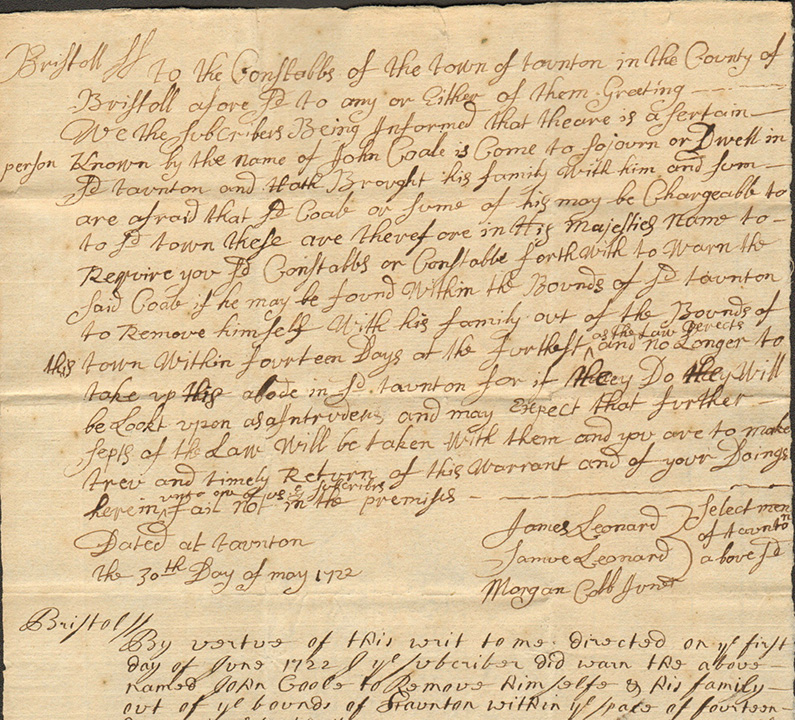 Bristoll ss To the Constabbs of the town of taunton in the County of
Bristoll afore sd to any or Either of them Greeting
We the subcribers Being Informed that theare is a sertain
person Known by the name of John Coale is Come to sojourn or Dwell in
sd taunton and thath Brought his family With him and sum
are afraid that sd Coale or sume of his may be Chargeable to
to sd town these are therefore in His majesties Name to
Require you sd Constabbs or Constable forthwith to Warn the
said Coale if he may be found Within the Bounds of sd taunton
to Remove himself With his family out of the Bounds of
this town Within fourteen Days at the furthest as the Law Derects and no Longer to
take up his abode in sd taunton for if they Do they Will
be Lookt upon as aIntruders and may Expect that further
septs of the Law Will be taken With them and you are to make
treu and timely Return of this Warrant and of your Doings
herein unto one of us ye subscribers fail not in the premises
James Leonard Select men
Dated at taunton of taunton
Samuel Leonard above sd
the 30th Day of may 1722
Morgan Cobb Junr
Bristol ss
By vertue of this writ to me directed on ye first
day of June 1722 I ye subcriber did warn the above
named John Coole to Remove him selfe & his family
out of ye bounds of Taunton within ye space of fourteen